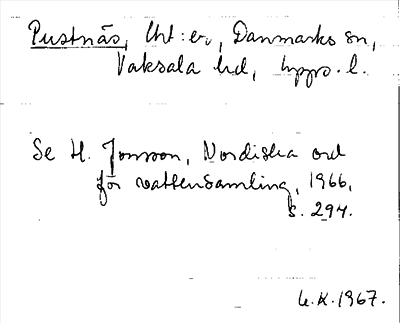 Pustnäs, Uht:er, Danmarks sn,
Vaksala hd, Upps. l.
Se H. Jonsson, Nordiska ord
för vattensamling, 1966,
s. 294.
U.K. 1967.